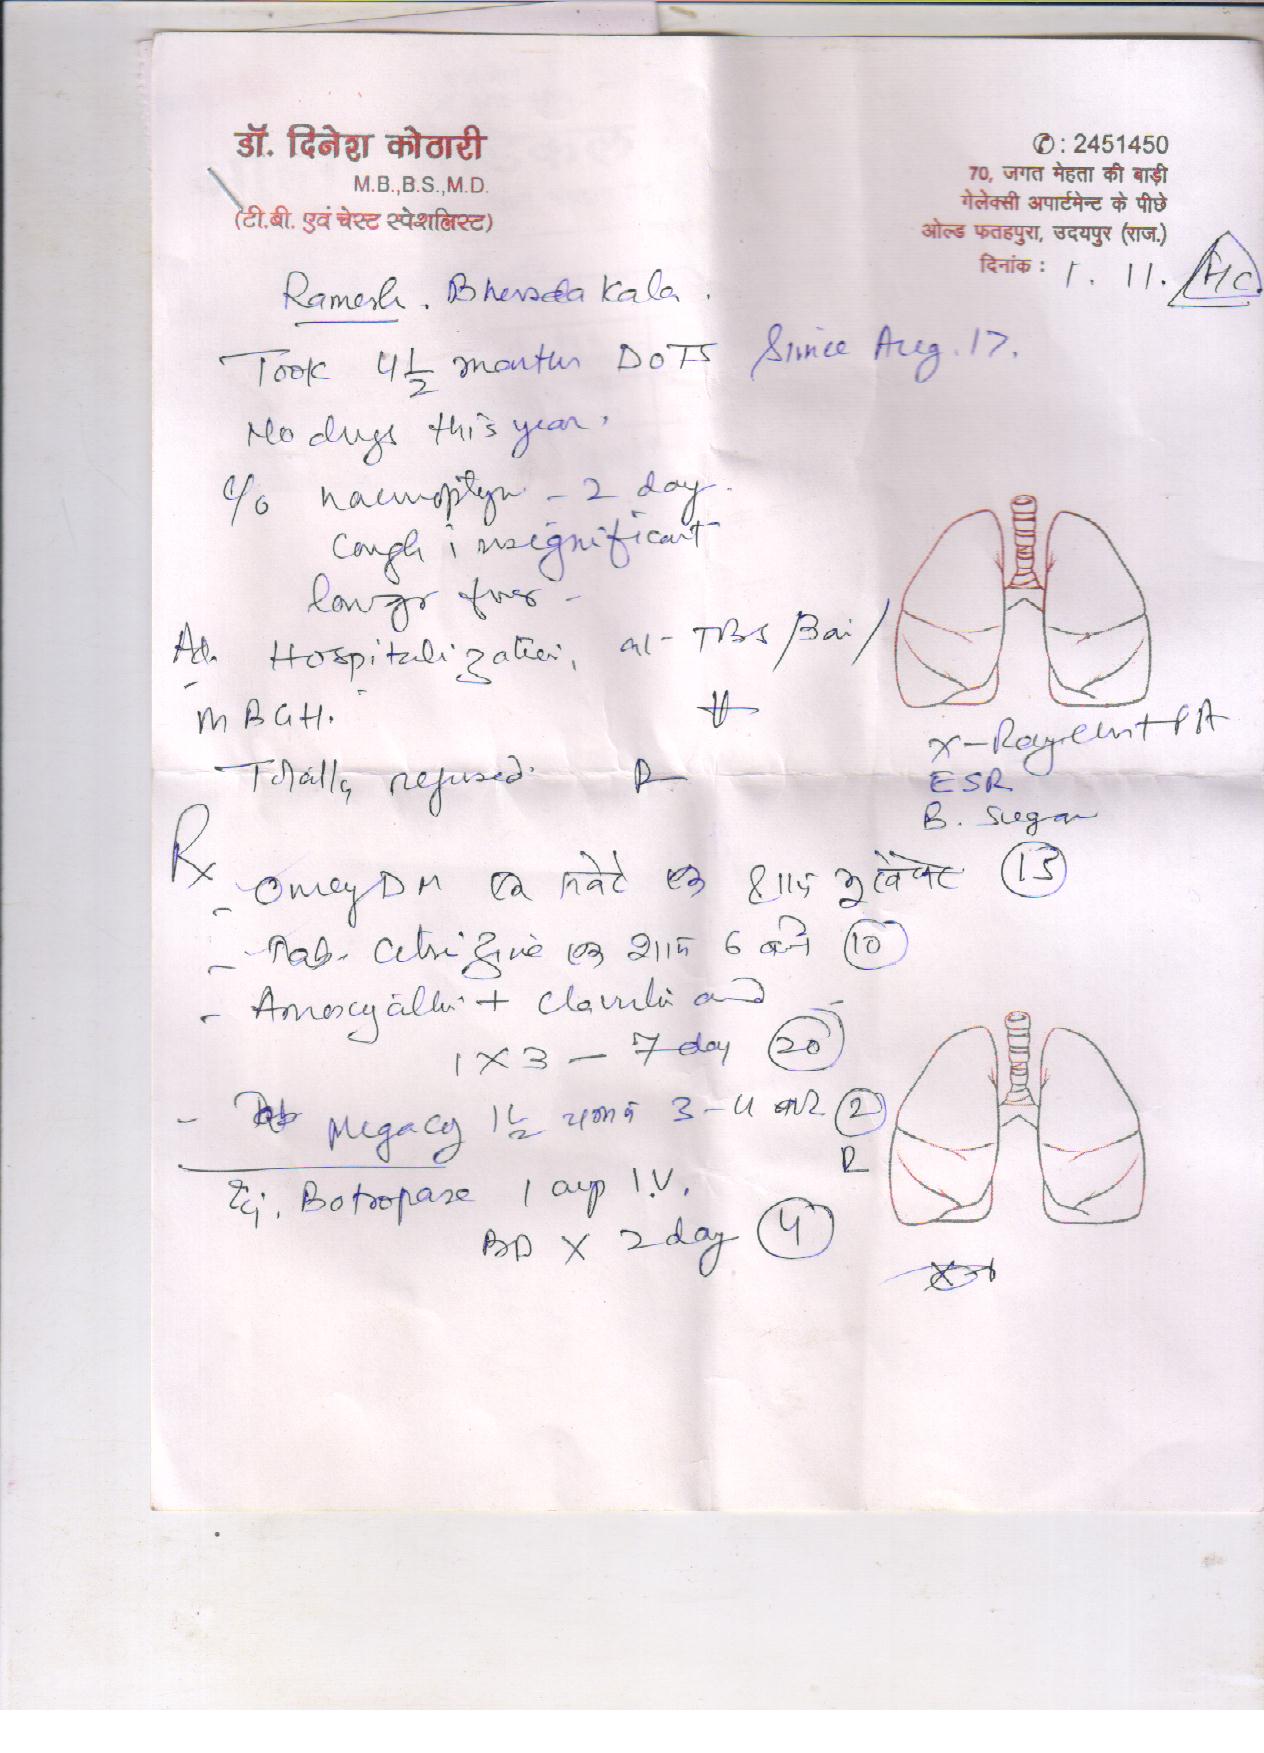 डॉ. दिनेश कोठारी
M.B.,B.S.,M.D.
(टी.बी. एवं चेस्ट स्पेशलिस्ट)
✆ : 2451450
70, जगत मेहता की बाड़ी
गेलेक्सी अपार्टमेन्ट के पीछे
ओल्ड फतहपुरा, उदयपुर (राज.)
दिनांक : 1. 11.
Ramesh. Bhersda Kala.
Took 4 1/2 months DOTS Since Aug. 17.
No drugs this year.
C/o haemoptysis - 2 day.
Cough insignificant
Ad. Hospitalization, at - TBS / Bari /
MBGH.
Totally refused.
X-Ray Chest PA
ESR
B. Sugar
Rx
- Omez DM एक सवेरे एक शाम 15
- Tab. एक शाम 6 बजे 10
- Amoxycillin + Clavulanic acid
1 X 3 - 7 day 20
- Megacy 1 1/2 चम्मच 3-4 बार 2
Inj. Botropase 1 amp I.V.
BD X 2 day 4